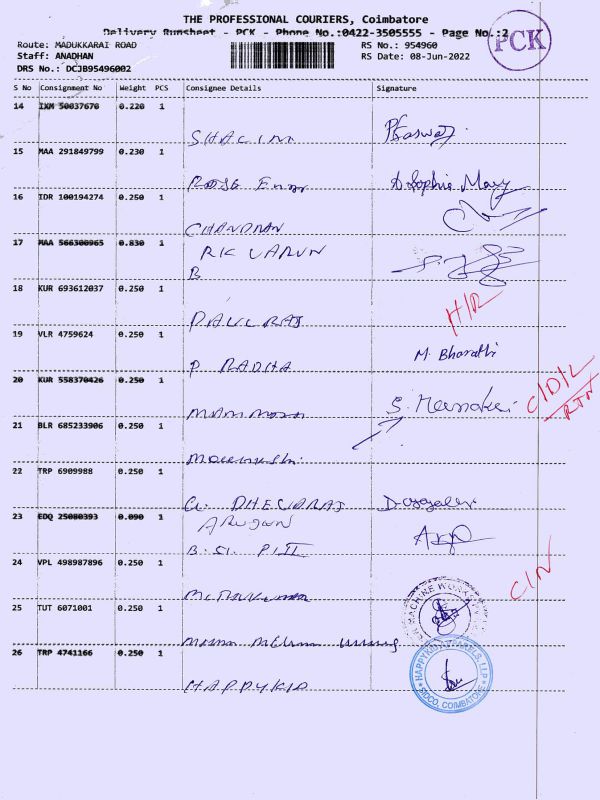 THE PROFESSIONAL COURIERS, Coimbatore
Delivery Runsheet - PCK - Phone No.:0422-3505555 - Page No.:2
PCK
Route: MADUKKARAI ROAD
Staff: ANADHAN
DRS No.: DCJB95496002
RS No.: 954960
RS Date: 08-Jun-2022
S No Consignment No Weight PCS Consignee Details Signature
14 IXM 50037670 0.220 1
15 MAA 291849799 0.230 1
16 IDR 100194274 0.250 1 A Sophia Mary
CHANDRAN
17 MAA 566300965 0.830 1 RK VARUN
B
18 KUR 693612037 0.250 1 H/R
PAULRAJ
19 VLR 4759624 0.250 1 M. Bharathi
P RADHA
20 KUR 558370426 0.250 1 C/D/L
RTN
21 BLR 685233906 0.250 1
22 TRP 6909988 0.250 1
G. DHEVARAJ
23 EDQ 25080393 0.090 1
24 VPL 498987896 0.250 1 C/N
25 TUT 6071001 0.250 1 MACHINE WORKS
26 TRP 4741166 0.250 1 HAPPYKID APPARELS, LLP
SIDCO, COIMBATORE
HAPPYKID